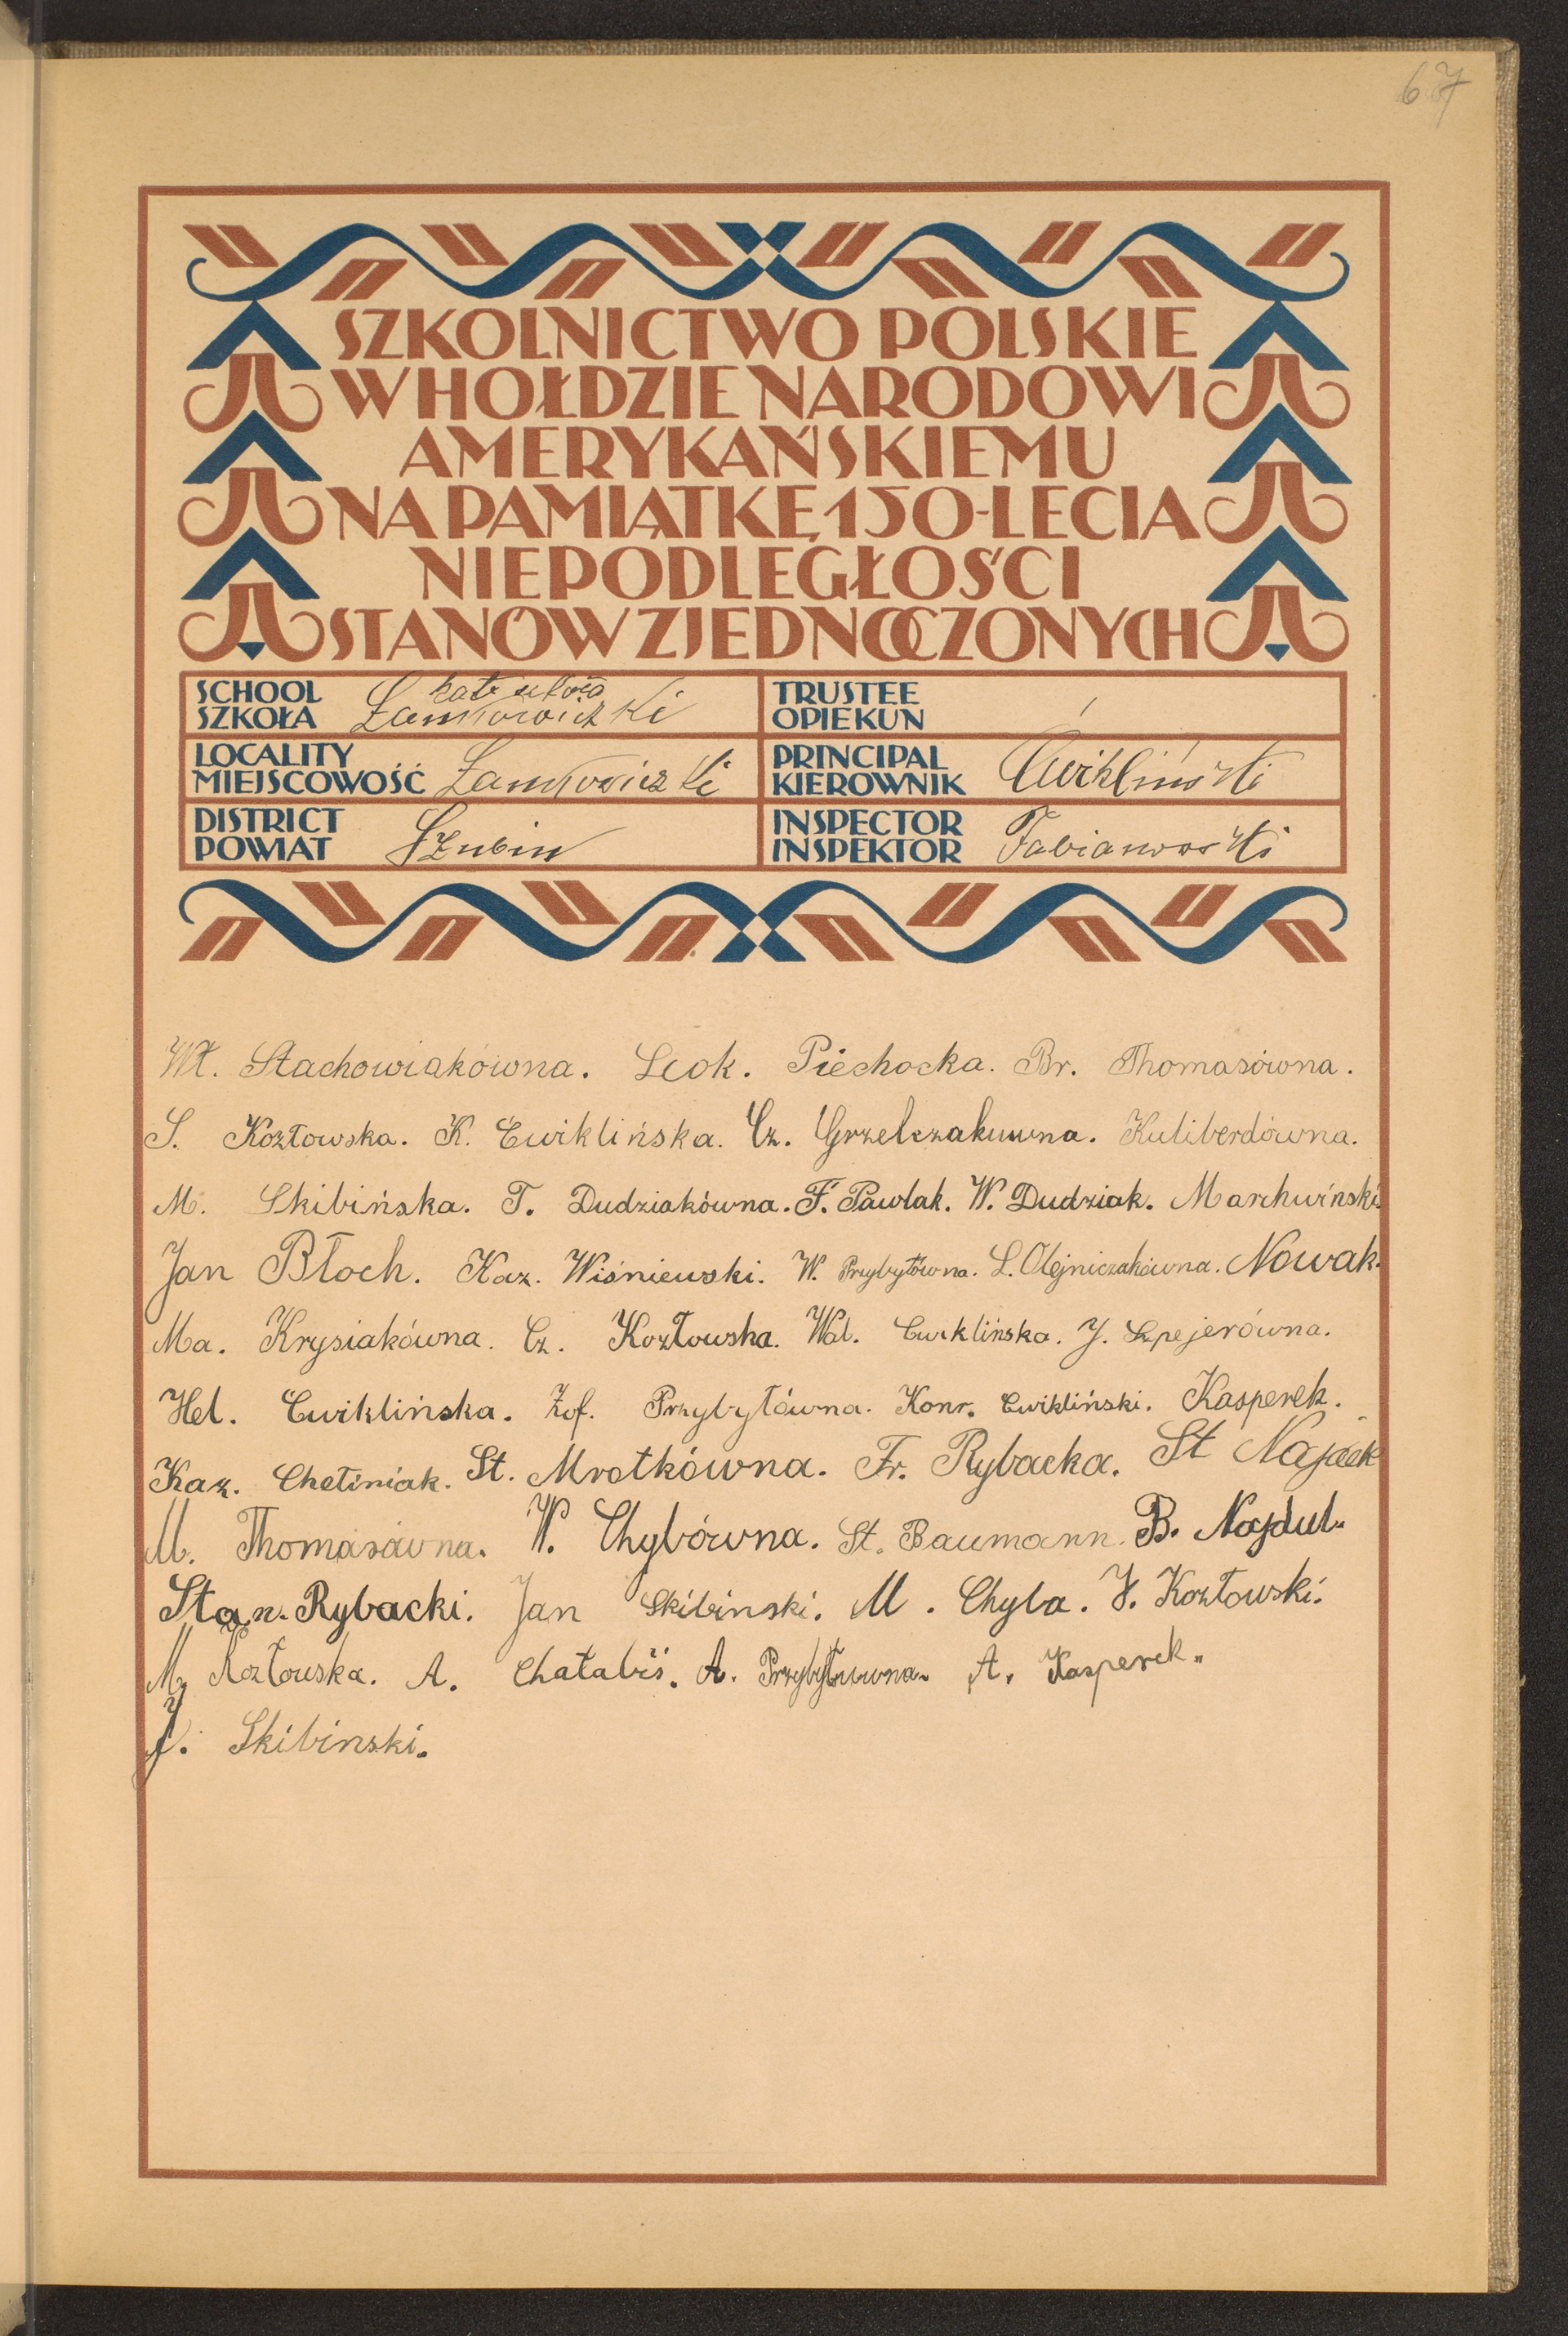 67
SZKOLNICTWO POLSKIE
W HOŁDZIE NARODOWI
AMERYKAŃSKIEMU
NA PAMIĄTKĘ 150-LECIA
NIEPODLEGŁOŚCI
STANÓW ZJEDNOCZONYCH
SCHOOL
SZKOŁA
TRUSTEE
OPIEKUN
LOCALITY
MIEJSCOWOŚĆ
PRINCIPAL
KIEROWNIK Ćwikliński
DISTRICT
POWIAT Szubin
INSPECTOR
INSPEKTOR Fabianowski
Wł. Stachowiakówna. Leok. Piechocka. Br. Thomasówna.
S. Kozłowska. K. Ćwiklińska. Cz. Grzelczakuwna. Kuliberdówna.
M. Skibińska. T. Dudziakówna. F. Pawlak. W. Dudziak. Marchwiński
Jan Błoch. Kaz. Wiśniewski. W. Przybyłówna. L. Olejniczakówna. Nowak.
Ma. Krysiakówna. Cz. Kozłowska. Wal. Cwiklińska. J. Szpejerówna.
Hel. Cwiklińska. Zof. Przybyłówna. Konr. Cwikliński. Kasperek.
Kaz. Chełiniak. St. Mrotkówna. Fr. Rybacka. St
M. Thomasówna. W. Chybówna. St. Baumann. B. Nojdul.
Stan. Rybacki. Jan Skibinski. M. Chyba. J. Kozłowski.
M. Kozłowska. A. Chałabiś. A. Przybyłuwna. A. Kasperek.
J. Skibinski.